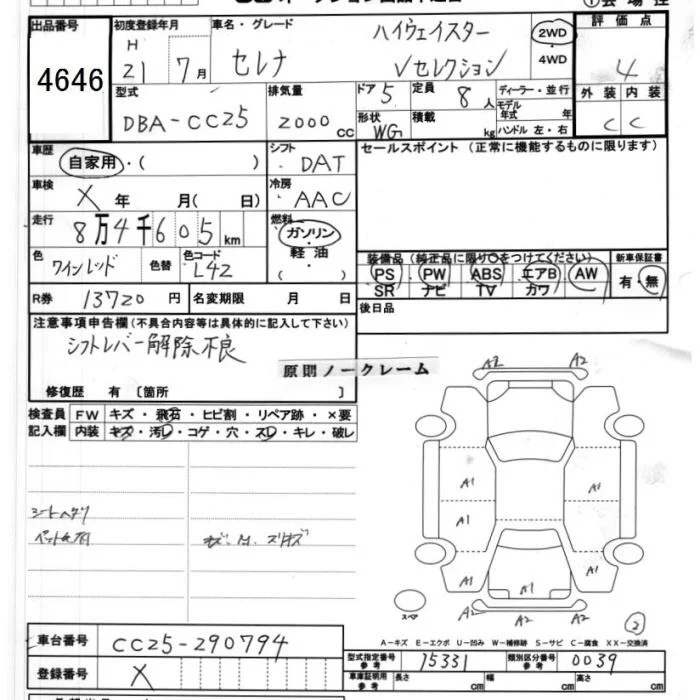 出品番号
4646
初度登録年月
H
21 7月
車名・グレード
セレナ
ハイウェイスター
Vセレクション
2WD
・
4WD
評価点
4
外装 内装
C C
型式
DBA-CC25
排気量
2000 cc
ドア 5
定員 8 人
形状 WG
積載 kg
ディーラー・並行
モデル年式 年
ハンドル 左・右
車歴
自家用・( )
シフト
DAT
セールスポイント (正常に機能するものに限ります)
車検
X 年 月( 日)
冷房
AAC
走行
8万4千605 km
燃料
ガソリン
軽油
色
ワインレッド
色替
色コード
L42
装備品 (純正品に限り○をつけてください)
PS PW ABS エアB AW
SR ナビ TV カワ
新車保証書
有・無
R券 13720 円
名変期限 月 日
後日品
注意事項申告欄 (不具合内容等は具体的に記入して下さい)
シフトレバー解除不良
修復歴 有 〔箇所 〕
原則ノークレーム
検査員
記入欄
FW キズ・飛石・ヒビ割・リペア跡・×要
内装 キズ・汚レ・コゲ・穴・スレ・キレ・破レ
A2 A2
A1 A1
A1
A1 A1 A1
A2 A2 A2
スペア
2
A-キズ E-エクボ U-凹み W-補修跡 S-サビ C-腐食 XX-交換済
車台番号 CC25-290794
登録番号 X
型式指定番号 参考 15331
類別区分番号 参考 0039
車庫証明用 参考
長さ cm
幅 cm
高さ cm